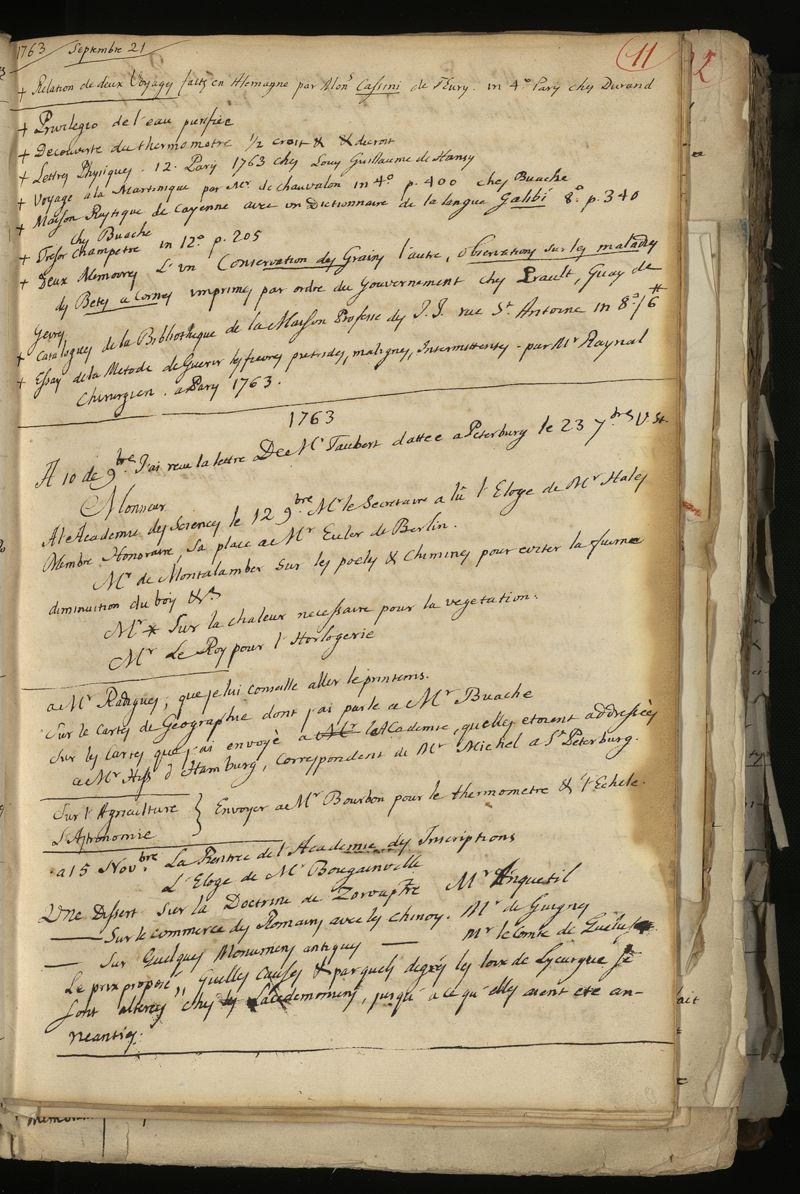 1763 Septembre 21
11
+ Relation de deux Voyages faits en Alemagne par Mon.r Cassini de Thury. in 4.o Pary chez Durand
+ Privilegio de l'eau purifiée
+ Decouverte du thermometre 1/2 croit & & decroit
+ Lettres Physiques . 12. Pary 1763 chez Louy Guillaume de Hansy
+ Voyage a la Martinique par Mr. de chauvalon in 4.o p. 400 chez Buache
+ Maison Rustique de Cayenne avec un Dictionnaire de la langue Galibi 8.o p. 340
chez Buache
+ Tresor champetre in 12.o p. 205
+ Deux Memoires L'un Conservation des Grains l'autre, observations sur les maladies
des Betes a Cornes imprimes par ordre du Gouvernement chez Prault, Quay de
Gevres
+ Catalogues de la Bibliotheque de la Maison Professe des J.J. rue St. Antoine in 8.o / 6 #
+ Essay de la Metode de Guerir les fievres putrides, malignes, Intermittentes - par Mr Raynal
Chirurgien . a Pary 1763.
1763
A 10 de 9.bre J'ai reçu la lettre De Mr Taubert dattée a Peterburg le 23 7.bres V. St
Monsieur
A l'Academie des Sciences le 12 9.bre Mr le Secretaire a lû l'Eloge de Mr Hales
Membre Honoraire, sa place a Mr Euler de Berlin.
Mr de Montalamber sur les poeles & Chimines pour eviter la fumée
diminution du bois &.a
Mr * Sur la chaleur necessaire pour la vegetation.
Mr Le Roy pour l'Horlogerie
a Mr Rodigues, que je lui conseille aller le printems.
Sur le Cartes de Géographie dont j'ai parle a Mr Buache
Sur les Cartes que j'ai envoyé a Mr l'Academie, quelles etoient addressées
a Mr His d'Hamburg, Correspondent de Mr Michel a St Peterburg.
Sur l'Agriculture } Envoyer a Mr Bourbon pour le thermometre & l'Echele.
L'Astronomie
a 15 Nov.bre La Rentrée de l'Academie des Inscriptions
L'Eloge de Mr Bougainville
Une Dissert sur la Doctrine de Zoroastre Mr Anquetil
— Sur le commerce des Romains avec les Chinois. Mr de Guignes
— Sur Quelques Monumens antiques — Mr le Comte de
Le prix proposé, Quelles Causes & par quels degrés les loix de Lycurgue se
sont alterées chez les Lacedemoniens, jusqu'a ce qu'elles aient ete an-
neanties.